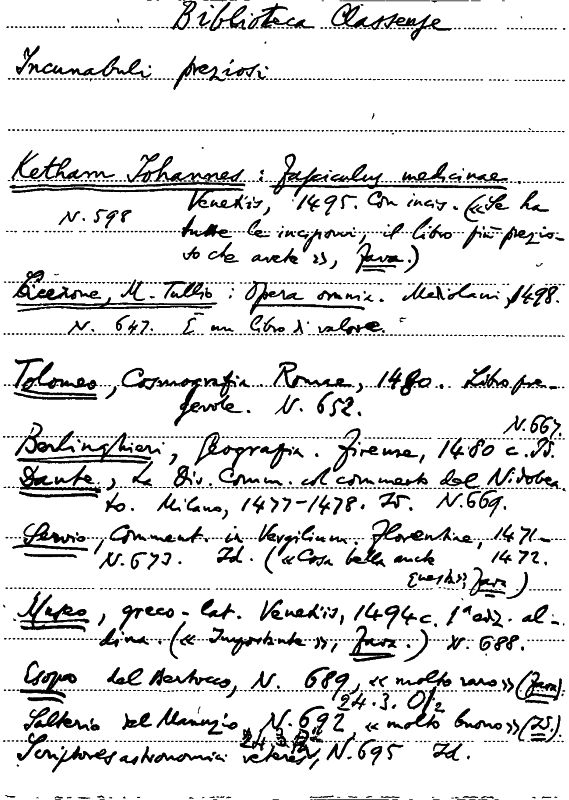 Biblioteca Classense
Incunabuli preziosi
Ketham Johannes : fasciculus medicinae.
Venetiis, 1495. Con incis. («Se ha
N. 598
tutte le incisioni, il libro più prezio-
so che avete», Java.)
Cicerone, M. Tullio : Opera omnia. Mediolani, 1498.
N. 647. È un libro di valore.
Tolomeo, Cosmografia Romae, 1480. Libro pre-
gevole. N. 652.
N. 667.
Berlinghieri, Geografia. Firenze, 1480 c. Id.
Dante, La Div. Comm. col commento del Nidobea
to. Milano, 1477-1478. Id. N. 669.
Servio, Comment. in Vergilium. Florentiae, 1471-
N. 673. Id. («Cosa bella anche 1472.
questa», Java)
Museo, greco-lat. Venetiis, 1494 c. 1ª ediz. al-
dina. («Importante», Java.) N. 688.
Esopo del Bertocco, N. 689, «molto raro» (Java).
24.3. O/2
Salterio del Manuzio, N. 692, «molto buono» (Id.)
Scriptores astronomici veteres, N. 695 Id.